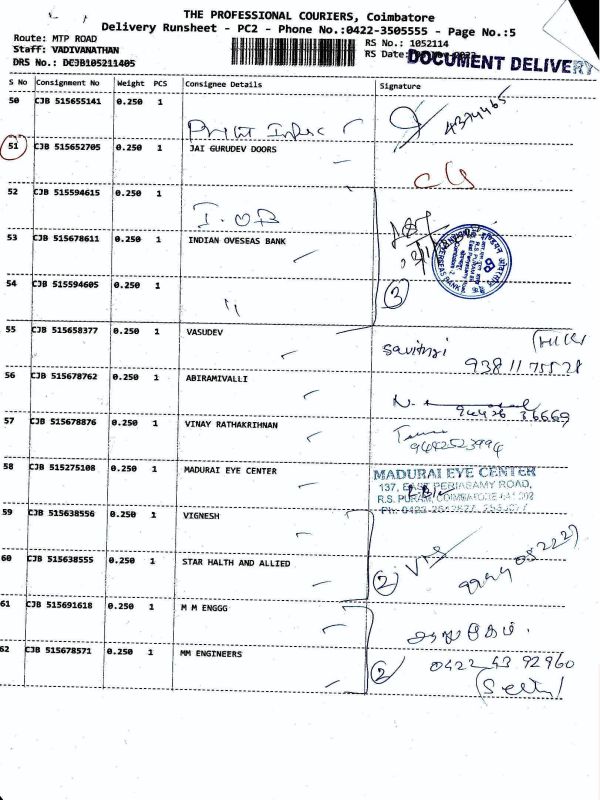 THE PROFESSIONAL COURIERS, Coimbatore
Delivery Runsheet - PC2 - Phone No.:0422-3505555 - Page No.:5
Route: MTP ROAD
RS No.: 1052114
Staff: VADIVANATHAN
RS Date:
DOCUMENT DELIVERY
DRS No.: DCJB105211405
S No Consignment No Weight PCS Consignee Details Signature
50 CJB 515655141 0.250 1
51 CJB 515652705 0.250 1 JAI GURUDEV DOORS
52 CJB 515594615 0.250 1 I.O.B
53 CJB 515678611 0.250 1 INDIAN OVESEAS BANK
54 CJB 515594605 0.250 1 "
3
55 CJB 515658377 0.250 1 VASUDEV
Savithri
93811 75528
56 CJB 515678762 0.250 1 ABIRAMIVALLI
57 CJB 515678876 0.250 1 VINAY RATHAKRIHNAN
9442523994
58 CJB 515275108 0.250 1 MADURAI EYE CENTER
MADURAI EYE CENTER
137, EAST PERIASAMY ROAD,
R.S. PURAM, COIMBATORE-641 002
59 CJB 515638556 0.250 1 VIGNESH
60 CJB 515638555 0.250 1 STAR HALTH AND ALLIED
2
61 CJB 515691618 0.250 1 M M ENGGG
62 CJB 515678571 0.250 1 MM ENGINEERS
2 0422 43 92960